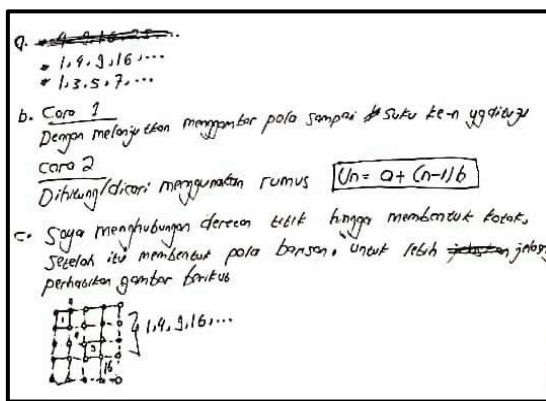 a. 4, 9, 16, 25, ...
* 1, 4, 9, 16, ...
* 1, 3, 5, 7, ...
b. Cara 1
Dengan melanjutkan menggambar pola sampai suku ke-n yg dituju
Cara 2
Dihitung/dicari menggunakan rumus Un = a + (n-1)b
c. Saya menghubungan deretan titik hingga membentuk kotak,
setelah itu membentuk pola barisan. Untuk lebih jelasnya
perhatikan gambar berikut
1, 4, 9, 16, ...
1
4
9
16